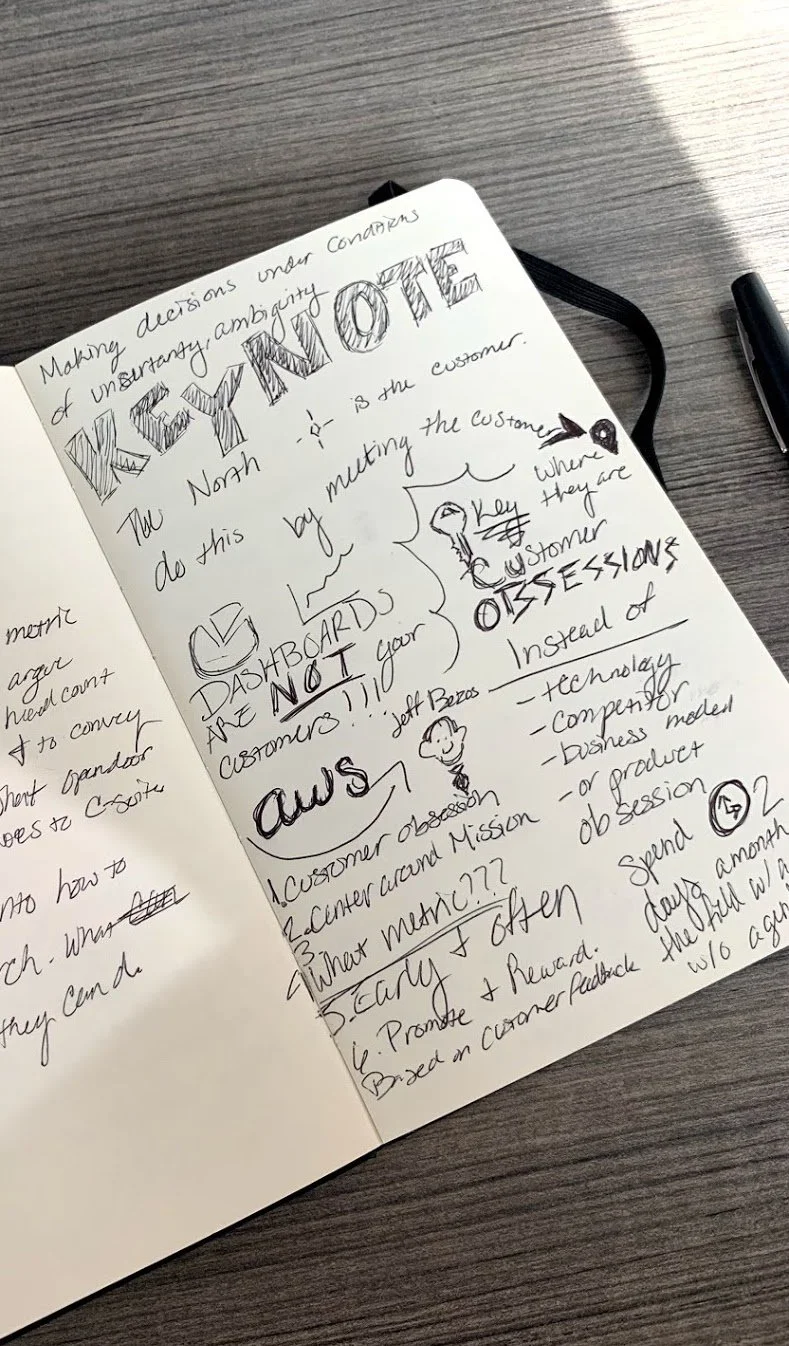 metric
headcount
& to convey
opendoor
to C-suite
how to
What
they can do
Making decisions under conditions
of unsertanty, ambiguity
KEYNOTE
The North is the customer.
do this by meeting the customer
where
they are
Key
Customer
OBSSESSIONS
DASHBOARDS
ARE NOT your
customers!!!
Instead of
- technology
- competitor
- business model
- or product
obsession
Jeff Bezos
aws
1. Customer obsession
2. Center around Mission
3.
4. What metric???
5. Early & often
6. Promote & Reward.
Based on customer feedback
Spend 2
days a month
the field w/a
w/o